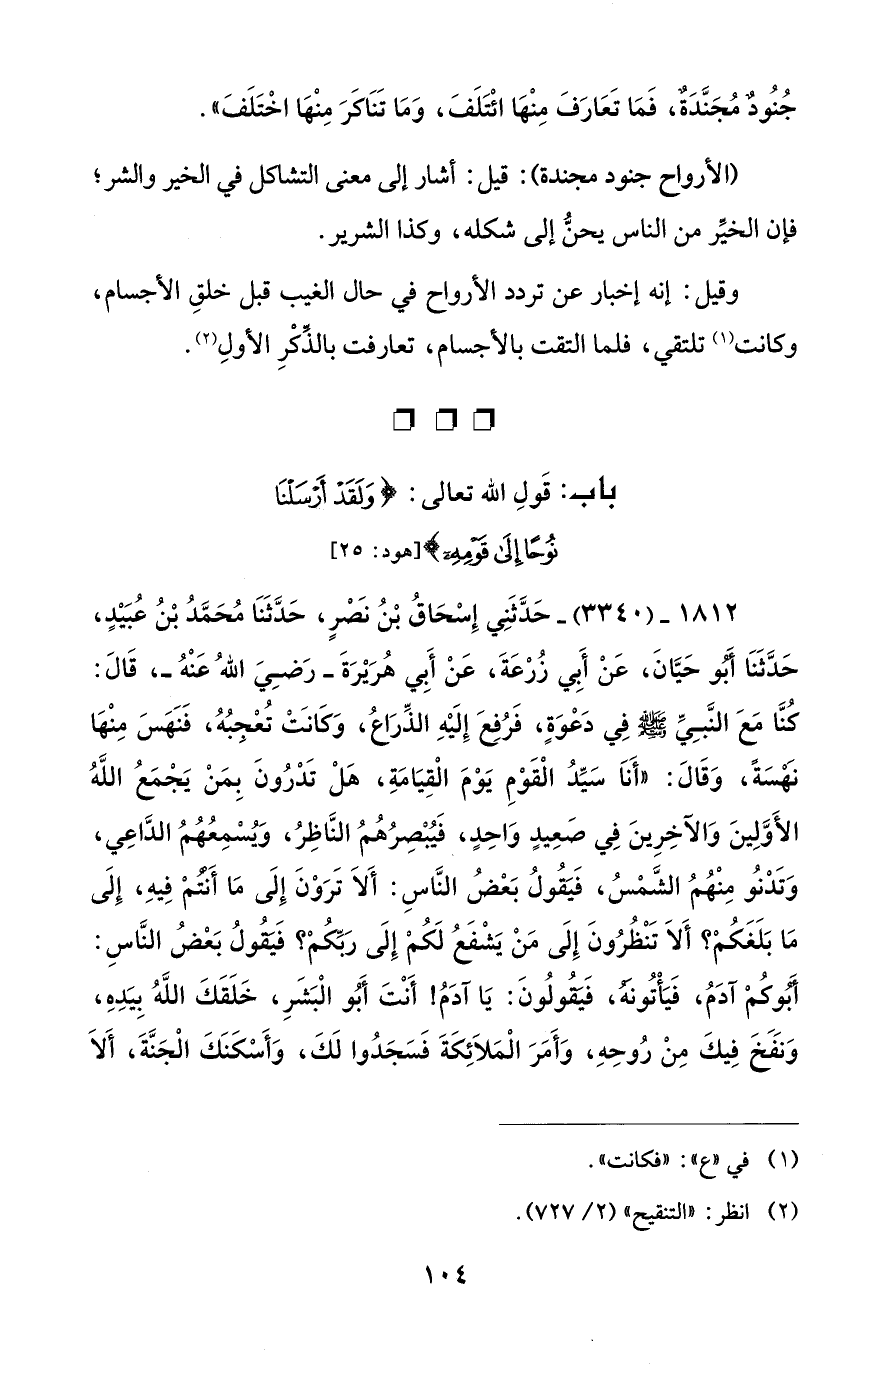 جُنُودٌ مُجَنَّدَةٌ، فَمَا تَعَارَفَ مِنْهَا ائْتَلَفَ، وَمَا تَنَاكَرَ مِنْهَا اخْتَلَفَ».
(الأرواح جنود مجندة): قيل: أشار إلى معنى التشاكل في الخير والشر؛
فإن الخيِّر من الناس يحنُّ إلى شكله، وكذا الشرير.
وقيل: إنه إخبار عن تردد الأرواح في حال الغيب قبل خلقِ الأجسام،
وكانت(١) تلتقي، فلما التقت بالأجسام، تعارفت بالذِّكْرِ الأولِ(٢).
باب: قَولِ الله تعالى: ﴿وَلَقَدْ أَرْسَلْنَا
نُوحًا إِلَىٰ قَوْمِهِۦ﴾[هود: ٢٥]
١٨١٢ ـ (٣٣٤٠) ـ حَدَّثَنِي إِسْحَاقُ بْنُ نَصْرٍ، حَدَّثَنَا مُحَمَّدُ بْنُ عُبَيْدٍ،
حَدَّثَنَا أَبُو حَيَّانَ، عَنْ أَبِي زُرْعَةَ، عَنْ أَبِي هُرَيْرَةَ ـ رَضِيَ اللهُ عَنْهُ ـ، قَالَ:
كُنَّا مَعَ النَّبِيِّ ﷺ فِي دَعْوَةٍ، فَرُفِعَ إِلَيْهِ الذِّرَاعُ، وَكَانَتْ تُعْجِبُهُ، فَنَهَسَ مِنْهَا
نَهْسَةً، وَقَالَ: «أَنَا سَيِّدُ الْقَوْمِ يَوْمَ الْقِيَامَةِ، هَلْ تَدْرُونَ بِمَنْ يَجْمَعُ اللَّهُ
الأَوَّلِينَ وَالآخِرِينَ فِي صَعِيدٍ وَاحِدٍ، فَيُبْصِرُهُمُ النَّاظِرُ، وَيُسْمِعُهُمُ الدَّاعِي،
وَتَدْنُو مِنْهُمُ الشَّمْسُ، فَيَقُولُ بَعْضُ النَّاسِ: أَلاَ تَرَوْنَ إِلَى مَا أَنْتُمْ فِيهِ، إِلَى
مَا بَلَغَكُمْ؟ أَلاَ تَنْظُرُونَ إِلَى مَنْ يَشْفَعُ لَكُمْ إِلَى رَبِّكُمْ؟ فَيَقُولُ بَعْضُ النَّاسِ:
أَبُوكُمْ آدَمُ، فَيَأْتُونَهُ، فَيَقُولُونَ: يَا آدَمُ! أَنْتَ أَبُو الْبَشَرِ، خَلَقَكَ اللَّهُ بِيَدِهِ،
وَنَفَخَ فِيكَ مِنْ رُوحِهِ، وَأَمَرَ الْمَلاَئِكَةَ فَسَجَدُوا لَكَ، وَأَسْكَنَكَ الْجَنَّةَ، أَلاَ
(١) في «ع»: «فكانت».
(٢) انظر: «التنقيح» (٢/ ٧٢٧).
١٠٤